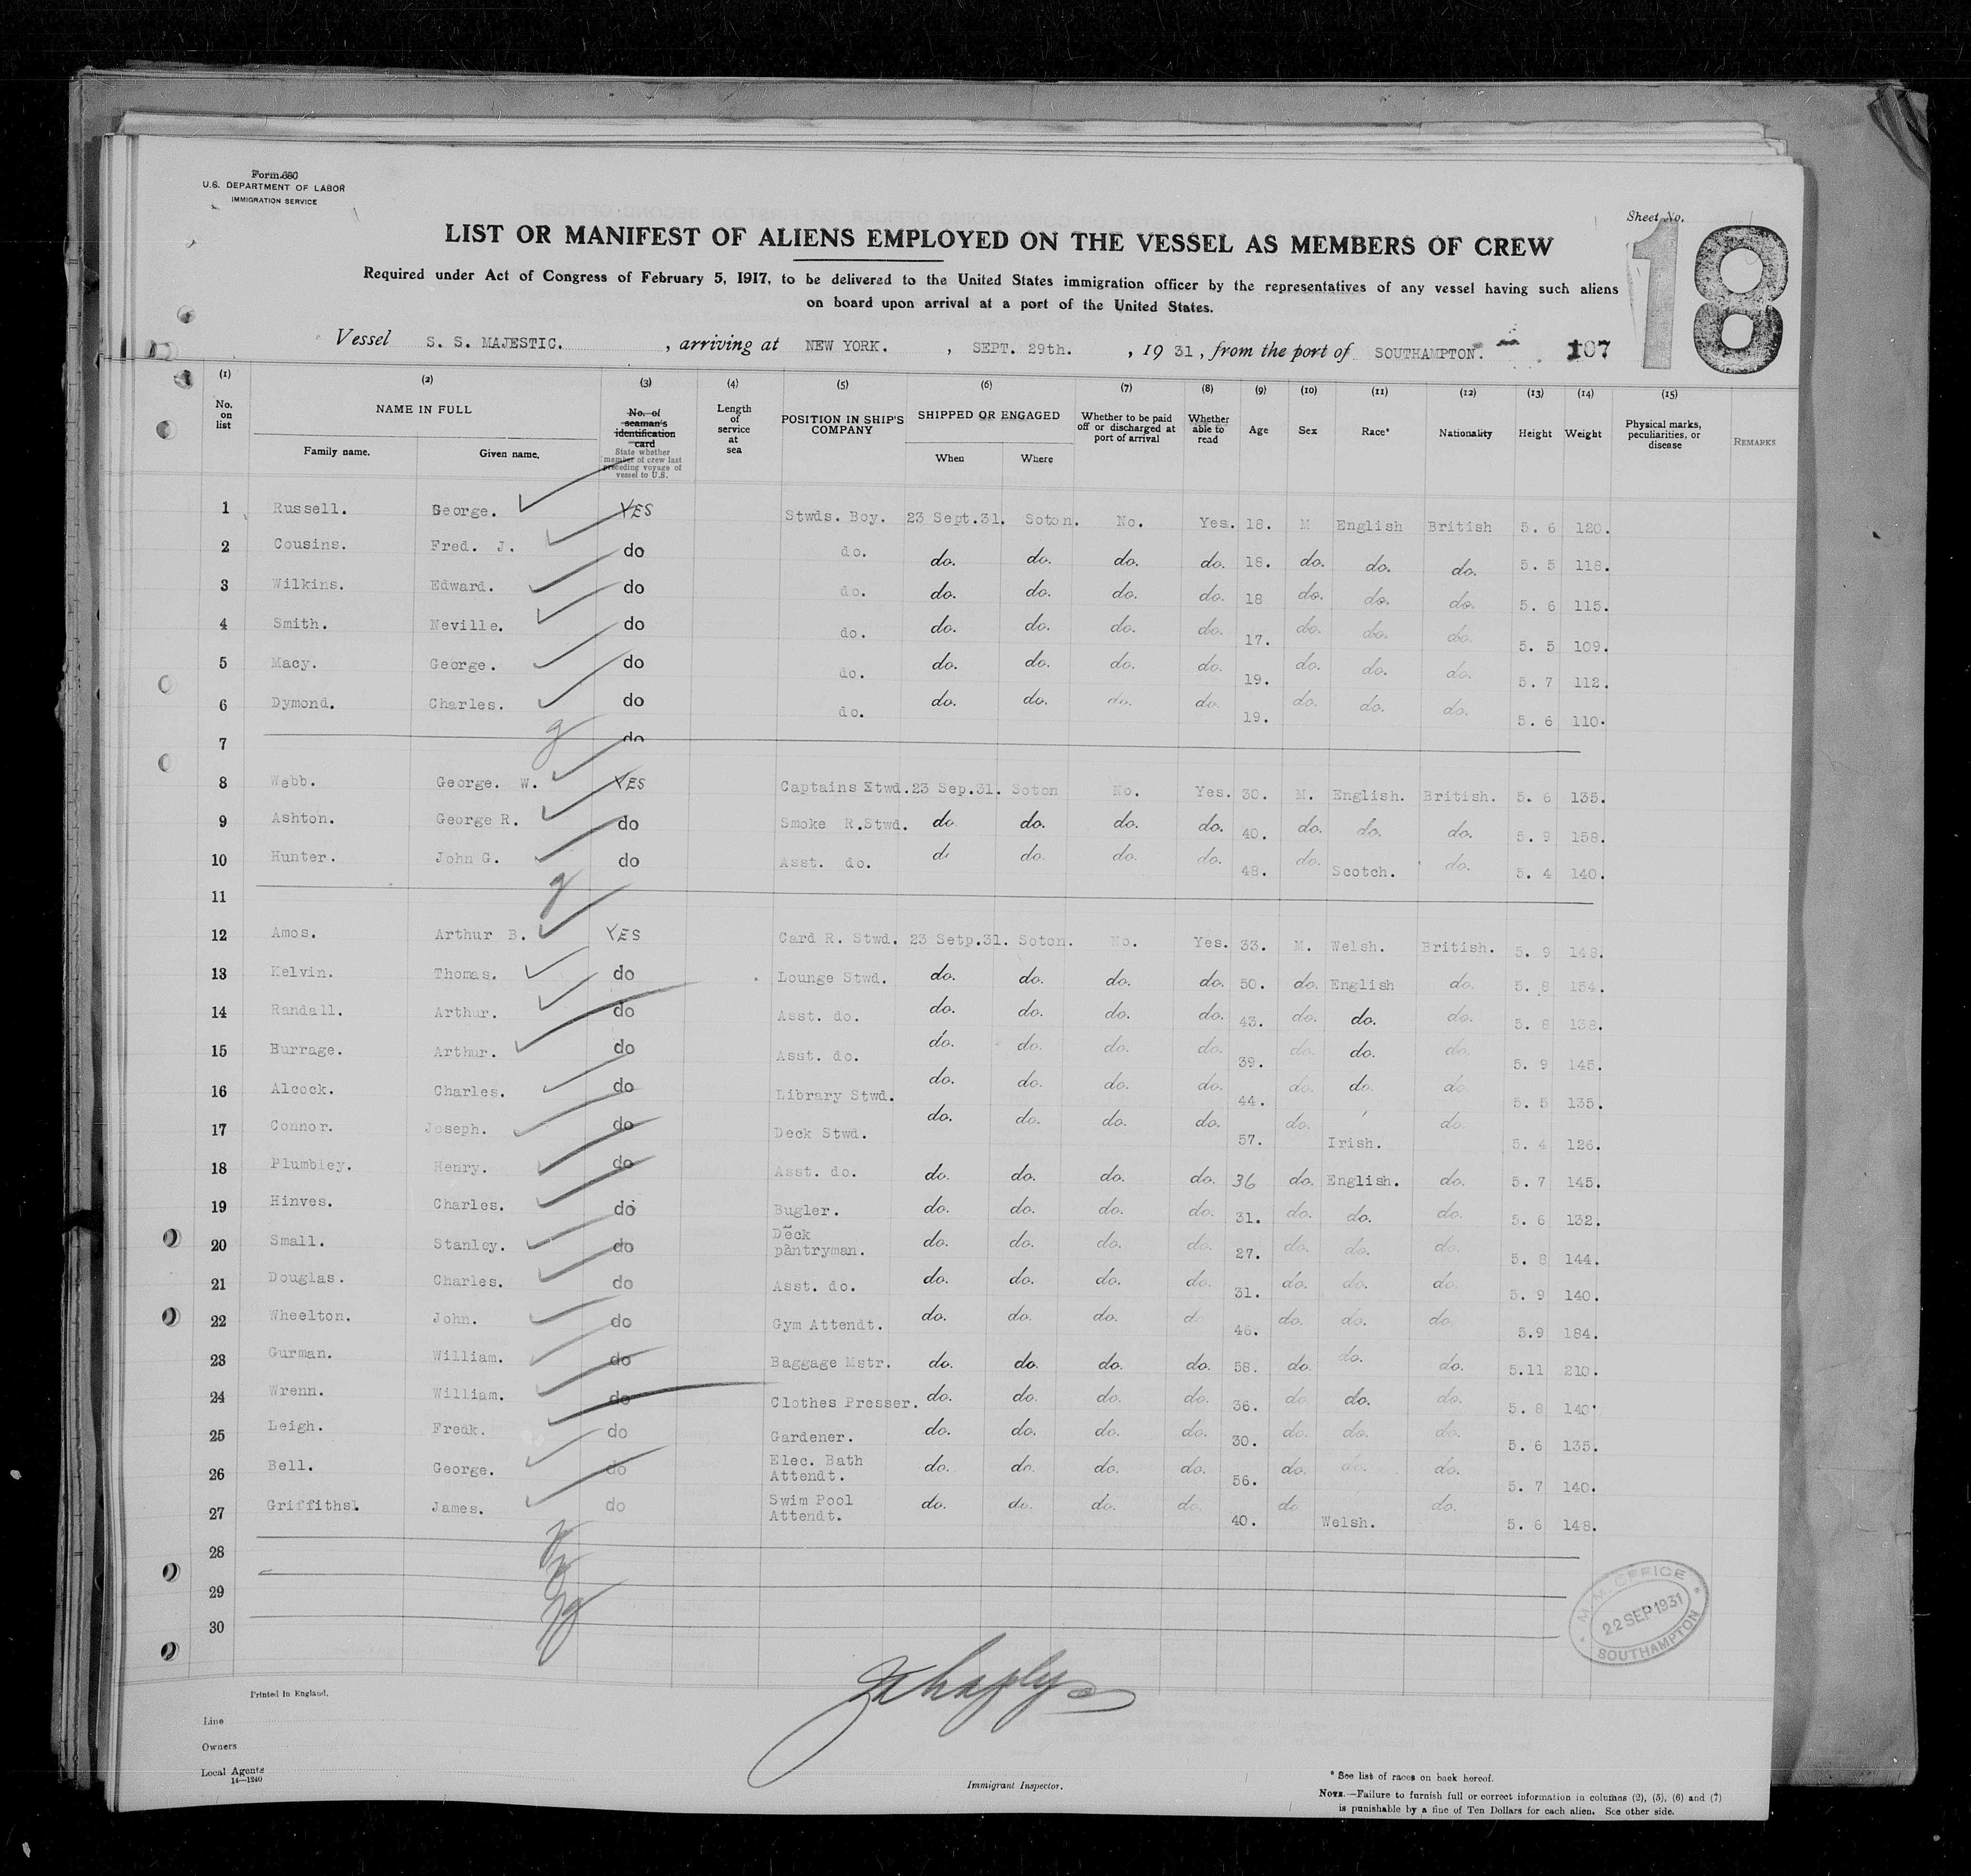 Form 680
U.S. DEPARTMENT OF LABOR
IMMIGRATION SERVICE
Sheet No. 18
LIST OR MANIFEST OF ALIENS EMPLOYED ON THE VESSEL AS MEMBERS OF CREW
Required under Act of Congress of February 5, 1917, to be delivered to the United States immigration officer by the representatives of any vessel having such aliens
on board upon arrival at a port of the United States.
Vessel S. S. MAJESTIC. , arriving at NEW YORK. , SEPT. 29th. , 19 31, from the port of SOUTHAMPTON. 107
(1) (2) (3) (4) (5) (6) (7) (8) (9) (10) (11) (12) (13) (14) (15)
No. on list NAME IN FULL Family name. Given name. No. of seaman's identification card State whether member of crew last preceding voyage of vessel to U.S. Length of service at sea POSITION IN SHIP'S COMPANY SHIPPED OR ENGAGED When Where Whether to be paid off or discharged at port of arrival Whether able to read Age Sex Race* Nationality Height Weight Physical marks, peculiarities, or disease REMARKS
1 Russell. George. YES Stwds. Boy. 23 Sept.31. Soton. No. Yes. 18. M English British 5. 6 120.
2 Cousins. Fred. J. do do. do. do. do. do. 18. do. do. do. 5. 5 118.
3 Wilkins. Edward. do do. do. do. do. do. 18 do. do. do. 5. 6 115.
4 Smith. Neville. do do. do. do. do. do. 17. do. do. do. 5. 5 109.
5 Macy. George. do do. do. do. do. do. 19. do. do. do. 5. 7 112.
6 Dymond. Charles. do do. do. do. do. do. 19. do. do. do. 5. 6 110.
7 do
8 Webb. George. W. YES Captains Stwd. 23 Sep.31. Soton No. Yes. 30. M. English. British. 5. 6 135.
9 Ashton. George R. do Smoke R.Stwd. do do. do. do. 40. do. do. do. 5. 9 158.
10 Hunter. John G. do Asst. do. do do. do. do. 48. do. Scotch. do. 5. 4 140.
11
12 Amos. Arthur B. YES Card R. Stwd. 23 Setp.31. Soton. No. Yes. 33. M. Welsh. British. 5. 9 148.
13 Kelvin. Thomas. do Lounge Stwd. do. do. do. do. 50. do. English do. 5. 8 154.
14 Randall. Arthur. do Asst. do. do. do. do. do. 43. do. do. do. 5. 8 138.
15 Burrage. Arthur. do Asst. do. do. do. do. do. 39. do. do. do. 5. 9 145.
16 Alcock. Charles. do Library Stwd. do. do. do. do. 44. do. do. do. 5. 5 135.
17 Connor. Joseph. do Deck Stwd. do. do. do. do. 57. do. Irish. do. 5. 4 126.
18 Plumbley. Henry. do Asst. do. do. do. do. do. 36 do. English. do. 5. 7 145.
19 Hinves. Charles. do Bugler. do. do. do. do. 31. do. do. do. 5. 6 132.
20 Small. Stanley. do Deck pantryman. do. do. do. do. 27. do. do. do. 5. 8 144.
21 Douglas. Charles. do Asst. do. do. do. do. do. 31. do. do. do. 5. 9 140.
22 Wheelton. John. do Gym Attendt. do. do. do. d 46. do. do. do. 5.9 184.
23 Gurman. William. do Baggage Mstr. do. do. do. do. 58. do. do. do. 5.11 210.
24 Wrenn. William. do Clothes Presser. do. do. do. do. 36. do do. do. 5. 8 140.
25 Leigh. Fredk. do Gardener. do. do. do. do. 30. do. do. do. 5. 6 135.
26 Bell. George. do Elec. Bath Attendt. do. do. do. do. 56. do. do. do. 5. 7 140.
27 Griffiths. James. do Swim Pool Attendt. do. do. do. do. 40. do Welsh. do. 5. 6 148.
28
29
30
M. M. OFFICE
22 SEP 1931
SOUTHAMPTON
Printed in England.
Line
Owners
Local Agents
14—1240
Immigrant Inspector.
* See list of races on back hereof.
NOTE.—Failure to furnish full or correct information in columns (2), (5), (6) and (7)
is punishable by a fine of Ten Dollars for each alien. See other side.